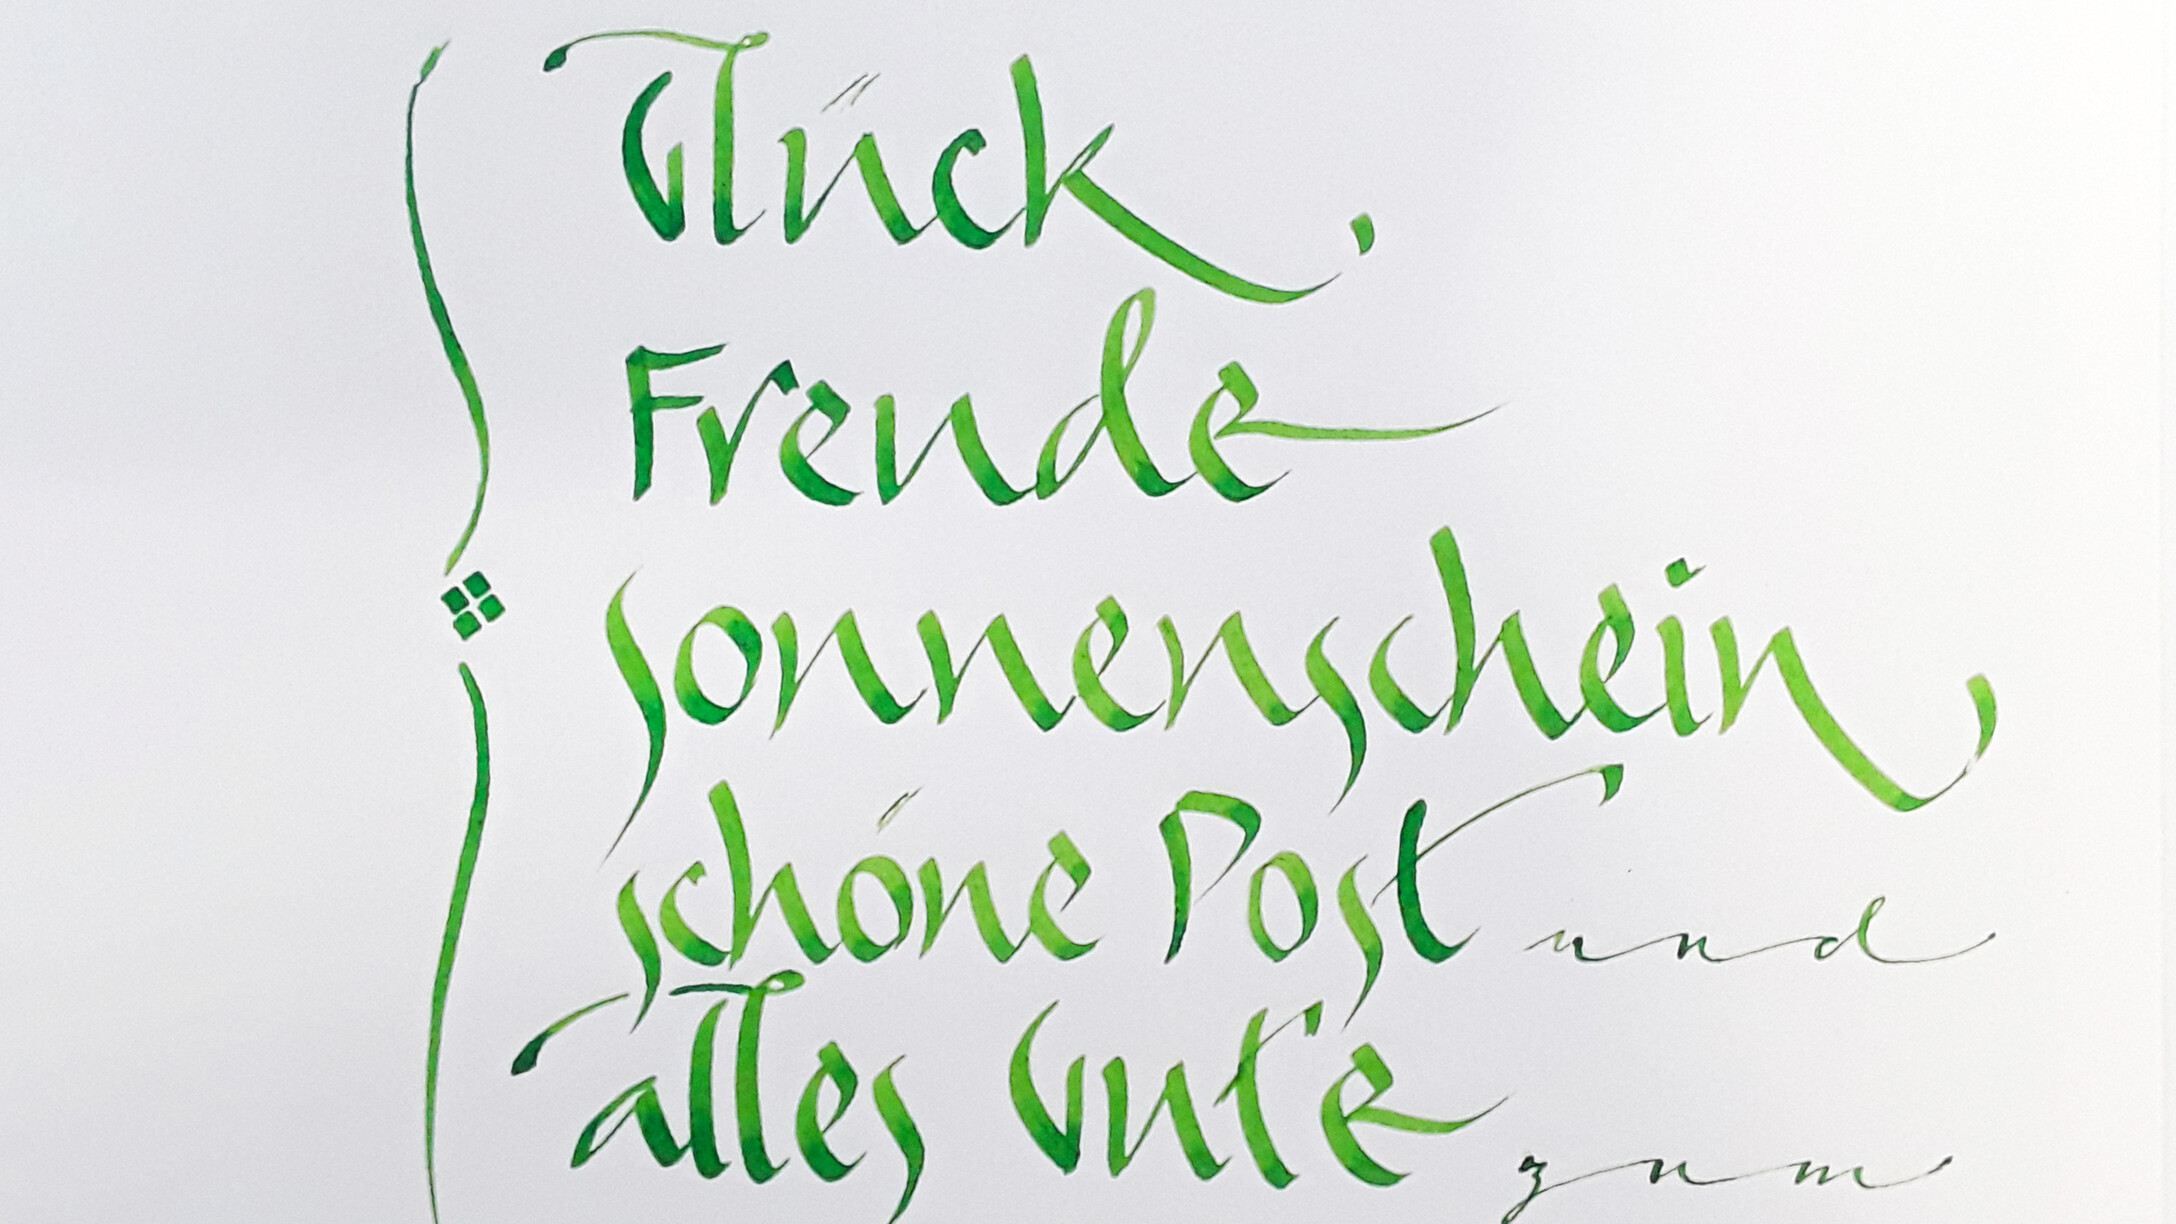 Glück
Freude
sonnenschein
schöne Post und
alles Gute zum